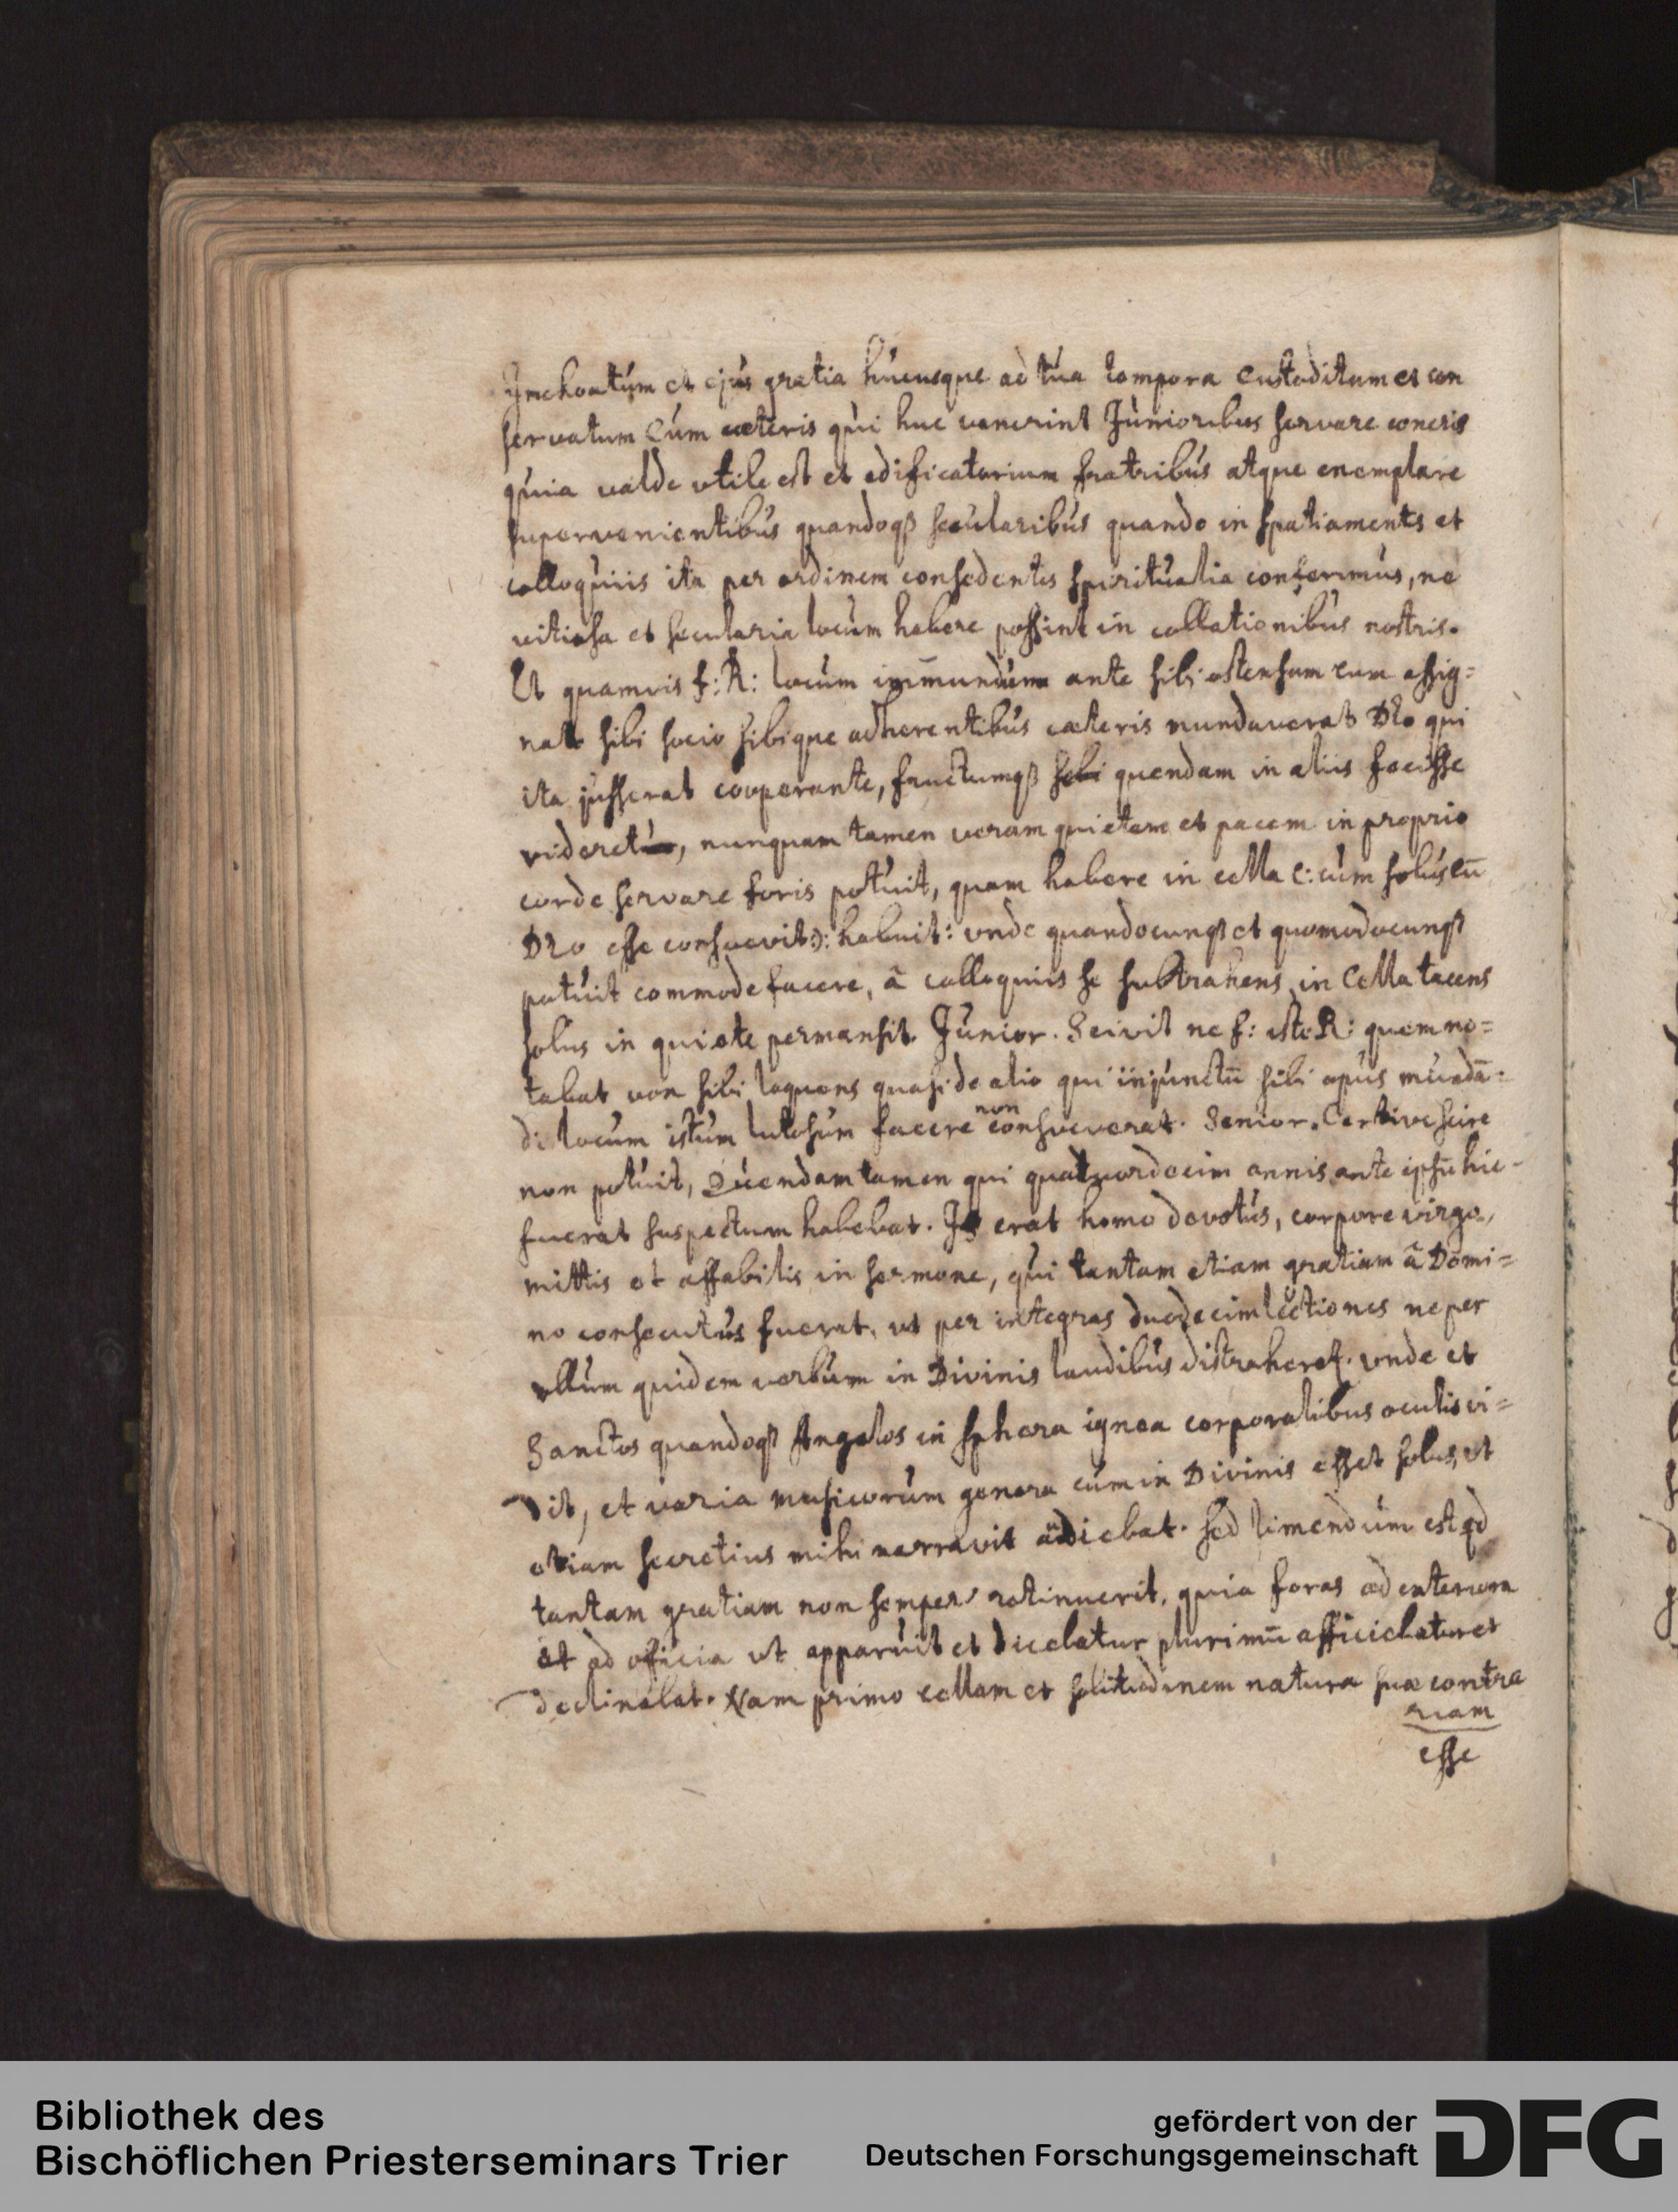 Inchoatum et ejus gratia hucusque ad tua tempora Custoditum et con
servatum Cum cæteris qui huc venerint Junioribus servare coneris
quia valde vtile est et edificatorium fratribus atque exemplare
supervenientibus quandoqȝ secularibus quando in spatiamentis et
colloquiis ita per ordinem consedentes spiritualia conferimus, ne
vitiosa et secularia locum habere possint in collationibus nostris.
Et quamvis f: R: locum immundum ante sibi ostensum cum assig=
nato sibi socio sibique adherentibus cæteris mundaverat Deo qui
ita jusserat cooperante, fructumqȝ sibi quendam in aliis fecisse
videret, nunquam tamen veram quietem et pacem in proprio
corde servare foris potuit, quam habere in cella (: cum solus cū
Deo esse consuevit :) habuit: vnde quandocunqȝ et quomodocunqȝ
potuit commode facere, â colloquiis se subtrahens in Cella tacens
solus in quiete permansit. Junior. Scivit ne f: iste R: quem no=
tabat vox sibi loquens quasi de alio qui injunctū sibi opus mundā=
di locum istum lutosum facere non consueverat. Senior. Certive scire
non potuit, Quendam tamen qui quatuordecim annis ante ipsū hic
fuerat suspectum habebat. Is erat homo devotus, corpore virgo,
mittis et affabilis in sermone, qui tantam etiam gratiam â Domi=
no consecutus fuerat, ut per integras duodecim lectiones ne per
vllum quidem verbum in Divinis laudibus distraheret. vnde et
Sanctos quandoqȝ Angelos in sphera ignea corporalibus oculis vi=
dit, et varia musicorum genera cum in Divinis esset solus, ut
etiam secretius mihi narravit audiebat. sed timendum est qd
tantam gratiam non semper retinuerit, quia foras ad exteriora
et ad officia vt apparuit et dicebatur plurimū afficiebatur et
declinabat. Nam primo cellam et solitudinem natura suæ contra
riam
esse
Bibliothek des
Bischöflichen Priesterseminars Trier
gefördert von der
Deutschen Forschungsgemeinschaft
DFG